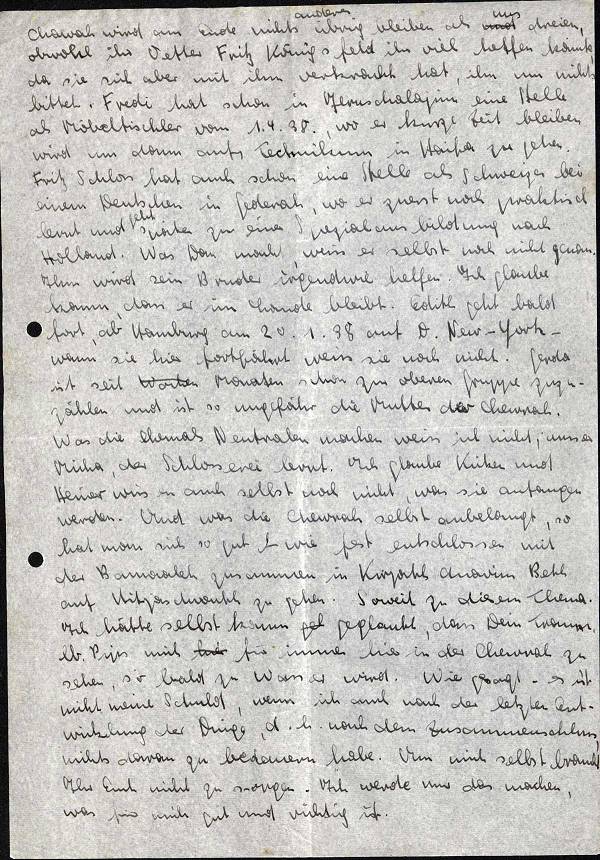 Chawah wird am Ende nichts anderes übrig bleiben als uns dreien,
obwohl ihr Vetter Fritz Königsfeld ihr viel helfen könnte,
da sie sich aber mit ihm verkracht hat, ihm um nichts
bittet. Fredi hat schon in Jeruschalajim eine Stelle
als Möbeltischler vom 1.4.38., wo er kurze Zeit bleiben
wird um dann aufs Technikum in Haifa zu gehen.
Fritz Schloss hat auch schon eine Stelle als Schweizer bei
einem Deutschen in Gederah, wo er zuerst noch praktisch
lernt und geht später zu einer Spezialausbildung nach
Holland. Was Dan macht, weiss er selbst noch nicht genau.
Ihm wird sein Bruder irgendwie helfen. Ich glaube
kaum, dass er im Lande bleibt. Edith geht bald
fort, ab Hamburg am 20.1.38 auf D. New-York-
wann sie hier fortfährt weiss sie noch nicht. Gerda
ist seit Monaten schon zur oberen Gruppe zuzu-
zählen und ist so ungefähr die Mutter der Chewrah.
Was die ehemals Neutralen machen weiss ich nicht; unser
Micha, der Schlosserei lernt. Ich glaube Küken und
Heiner wissen auch selbst noch nicht, was sie anfangen
werden. Und was die Chewrah selbst anbelangt, so
hat man sich so gut wie fest entschlossen mit
der Bamaaleh zusammen in Kirjath Anavim Beth
auf Hitjaschwuth zu gehen. Soweit zu diesem Thema.
Ich hätte selbst kaum geglaubt, dass Dein Traum,
lb. Pips mich für immer hier in der Chewrah zu
sehen, so bald zu Wasser wird. Wie gesagt - es ist
nicht meine Schuld, wenn ich auch nach der letzten Ent-
wicklung der Dinge, d.h. nach dem Zusammenschluss,
nichts davon zu bedauern habe. Um mich selbst braucht
Ihr Euch nicht zu sorgen. Ich werde nur das machen,
was für mich gut und richtig ist.